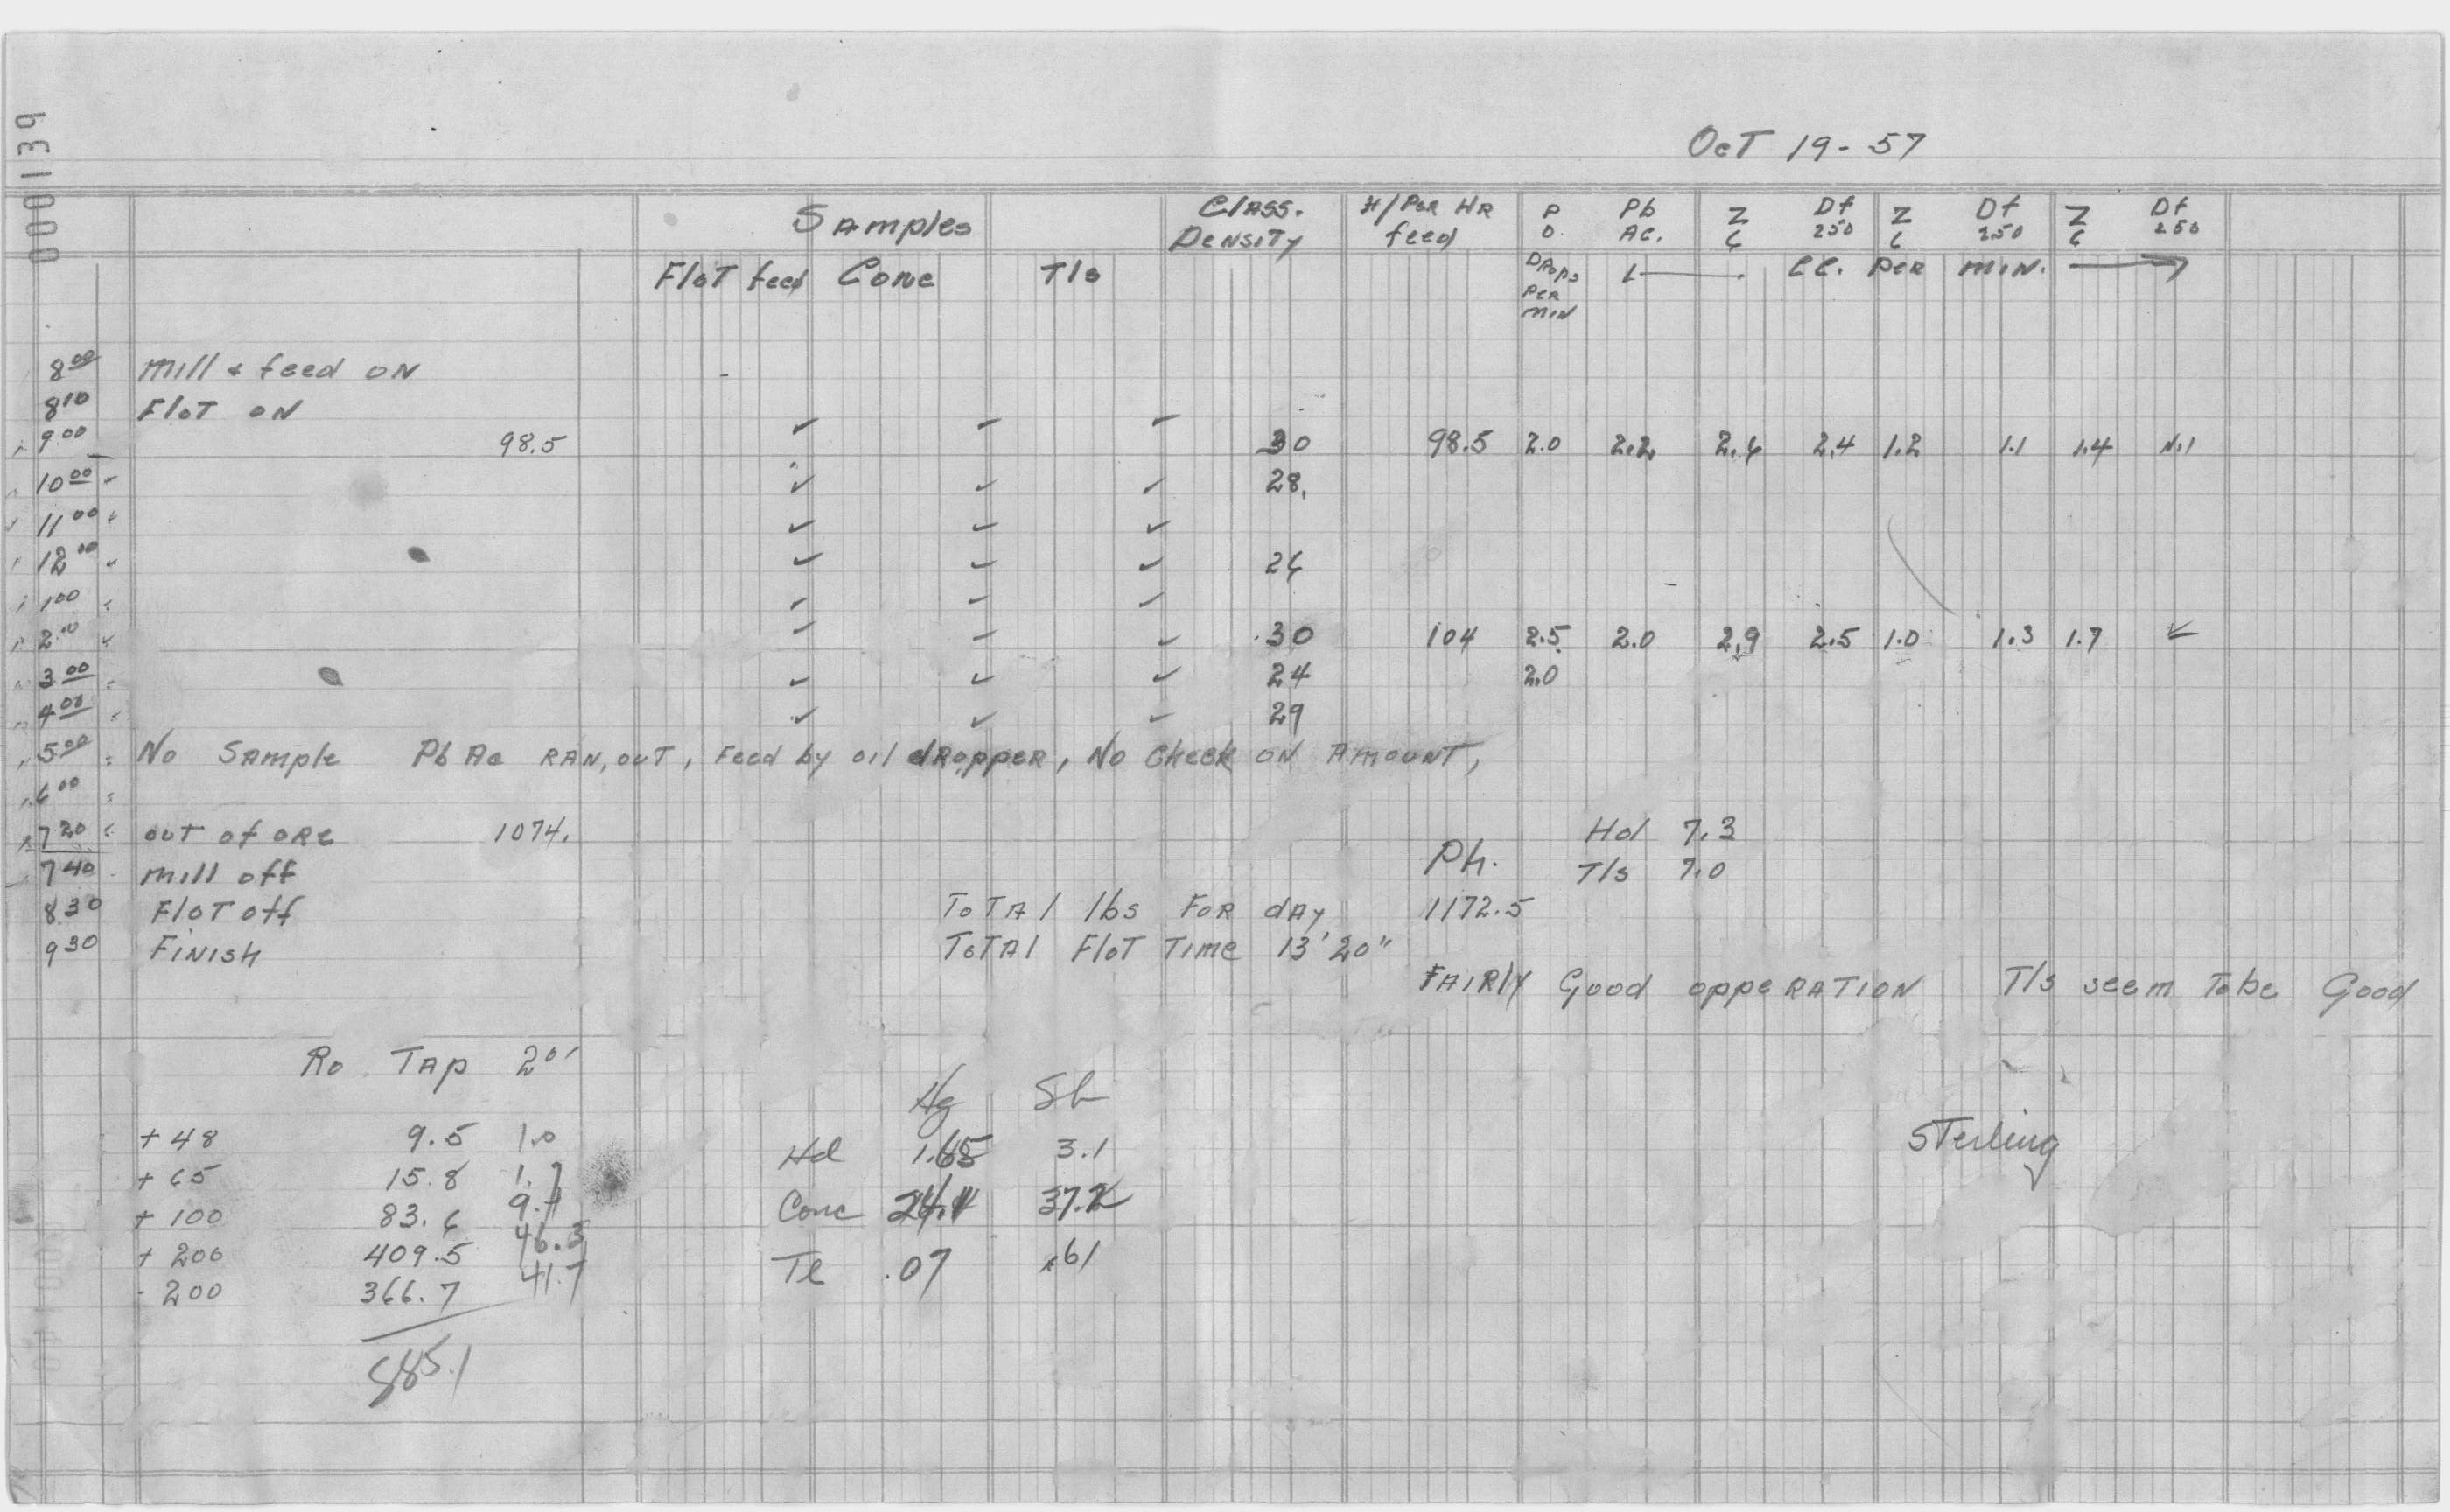 000139
Oct 19 - 57
Samples Class. Density #/Per Hr feed P O Pb Ac. Z 6 Df 250 Z 6 Df 250 Z 6 Df 250
Flot feed Conc Tls Drops Per Min CC. Per Min.
8 00 Mill & feed on
8 10 Flot on
9 00 98.5 ✓ ✓ ✓ 30 98.5 2.0 2.2 2.6 2.4 1.2 1.1 1.4
10 00 ✓ ✓ ✓ 28.
11 00 ✓ ✓ ✓
12 00 ✓ ✓ ✓ 26
1 00 ✓ ✓ ✓
2 00 ✓ ✓ ✓ 30 104 2.5 2.0 2.9 2.5 1.0 1.3 1.7 ✓
3 00 ✓ ✓ ✓ 24 2.0
4 00 ✓ ✓ ✓ 29
5 00 No Sample Pb Ac ran out, Feed by oil dropper, No check on amount,
6 00
7 20 out of ore 1074. Ph. Hd 7.3
7 40 Mill off Tls 7.0
8 30 Flot off Total lbs For day 1172.5
9 30 Finish Total Flot Time 13' 20"
Fairly Good opperation Tls seem to be Good
Ro Tap 20'
Hg Sb
+ 48 9.5 1.0 Hd 1.65 3.1 Sterling
+ 65 15.8 1.7
+ 100 83.6 Conc 37.2
+ 200 409.5 46.3 Tl .07 .61
- 200 366.7 41.7
885.1